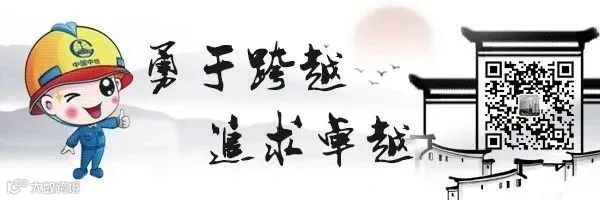 中国中铁
勇于跨越
追求卓越
大数跨境